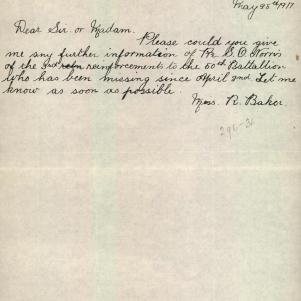 May 25th 1917
Dear Sir. or Madam.
Please could you give
me any further information of Pte S. O. Norris
of the 3rd reinforcements to the 50th Battallion
who has been missing since April 2nd Let me
know as soon as possible.
Mrs. R. Baker.